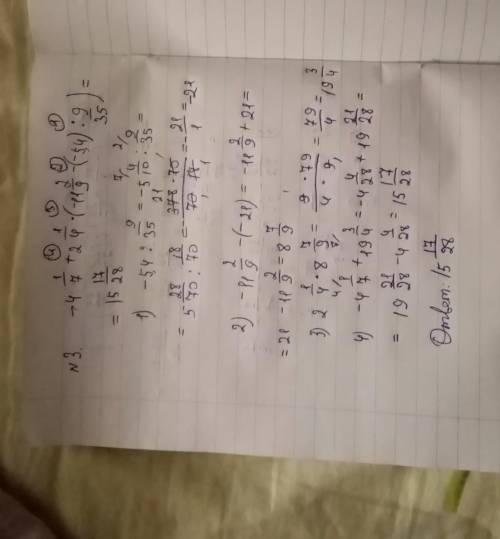 N3. -4 1/7 + 2 1/4 · (-12 2/9 - (-5,4) : 9/35) =
= 15 17/28
1) -5,4 : 9/35 = -5 4/10 : 9/35 =
= 5 28/70 : 18/70 = 378 · 70 / 70 · 18 = -21/1 = -21
2) -12 2/9 - (-21) = -12 2/9 + 21 =
= 21 - 12 2/9 = 8 7/9
3) 2 1/4 · 8 7/9 = 9 · 79 / 4 · 9 = 79/4 = 19 3/4
4) -4 1/7 + 19 3/4 = -4 4/28 + 19 21/28 =
= 19 21/28 - 4 4/28 = 15 17/28
Ответ: 15 17/28